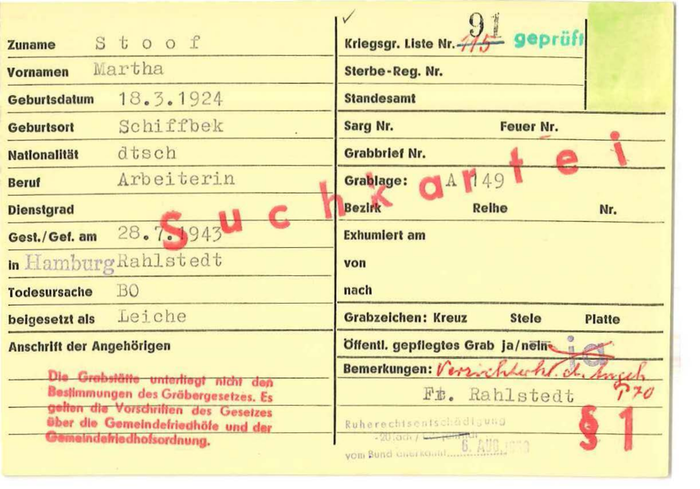 Zuname S t o o f
Vornamen Martha
Geburtsdatum 18.3.1924
Geburtsort Schiffbek
Nationalität dtsch
Beruf Arbeiterin
Dienstgrad
Gest./Gef. am 28.7.1943
in Hamburg Rahlstedt
Todesursache BO
beigesetzt als Leiche
Anschrift der Angehörigen
Die Grabstätte unterliegt nicht den
Bestimmungen des Gräbergesetzes. Es
gelten die Vorschriften des Gesetzes
über die Gemeindefriedhöfe und der
Gemeindefriedhofsordnung.
Suchkartei
91
Kriegsgr. Liste Nr. 115 geprüft
Sterbe-Reg. Nr.
Standesamt
Sarg Nr. Feuer Nr.
Grabbrief Nr.
Grablage: A 149
Bezirk Reihe Nr.
Exhumiert am
von
nach
Grabzeichen: Kreuz Stele Platte
Öffentl. gepflegtes Grab ja/nein ja
Bemerkungen: d. Angeh
70
Ft. Rahlstedt
§ 1
Ruherechtsentschädigung
vom Bund anerkannt 6. AUG.